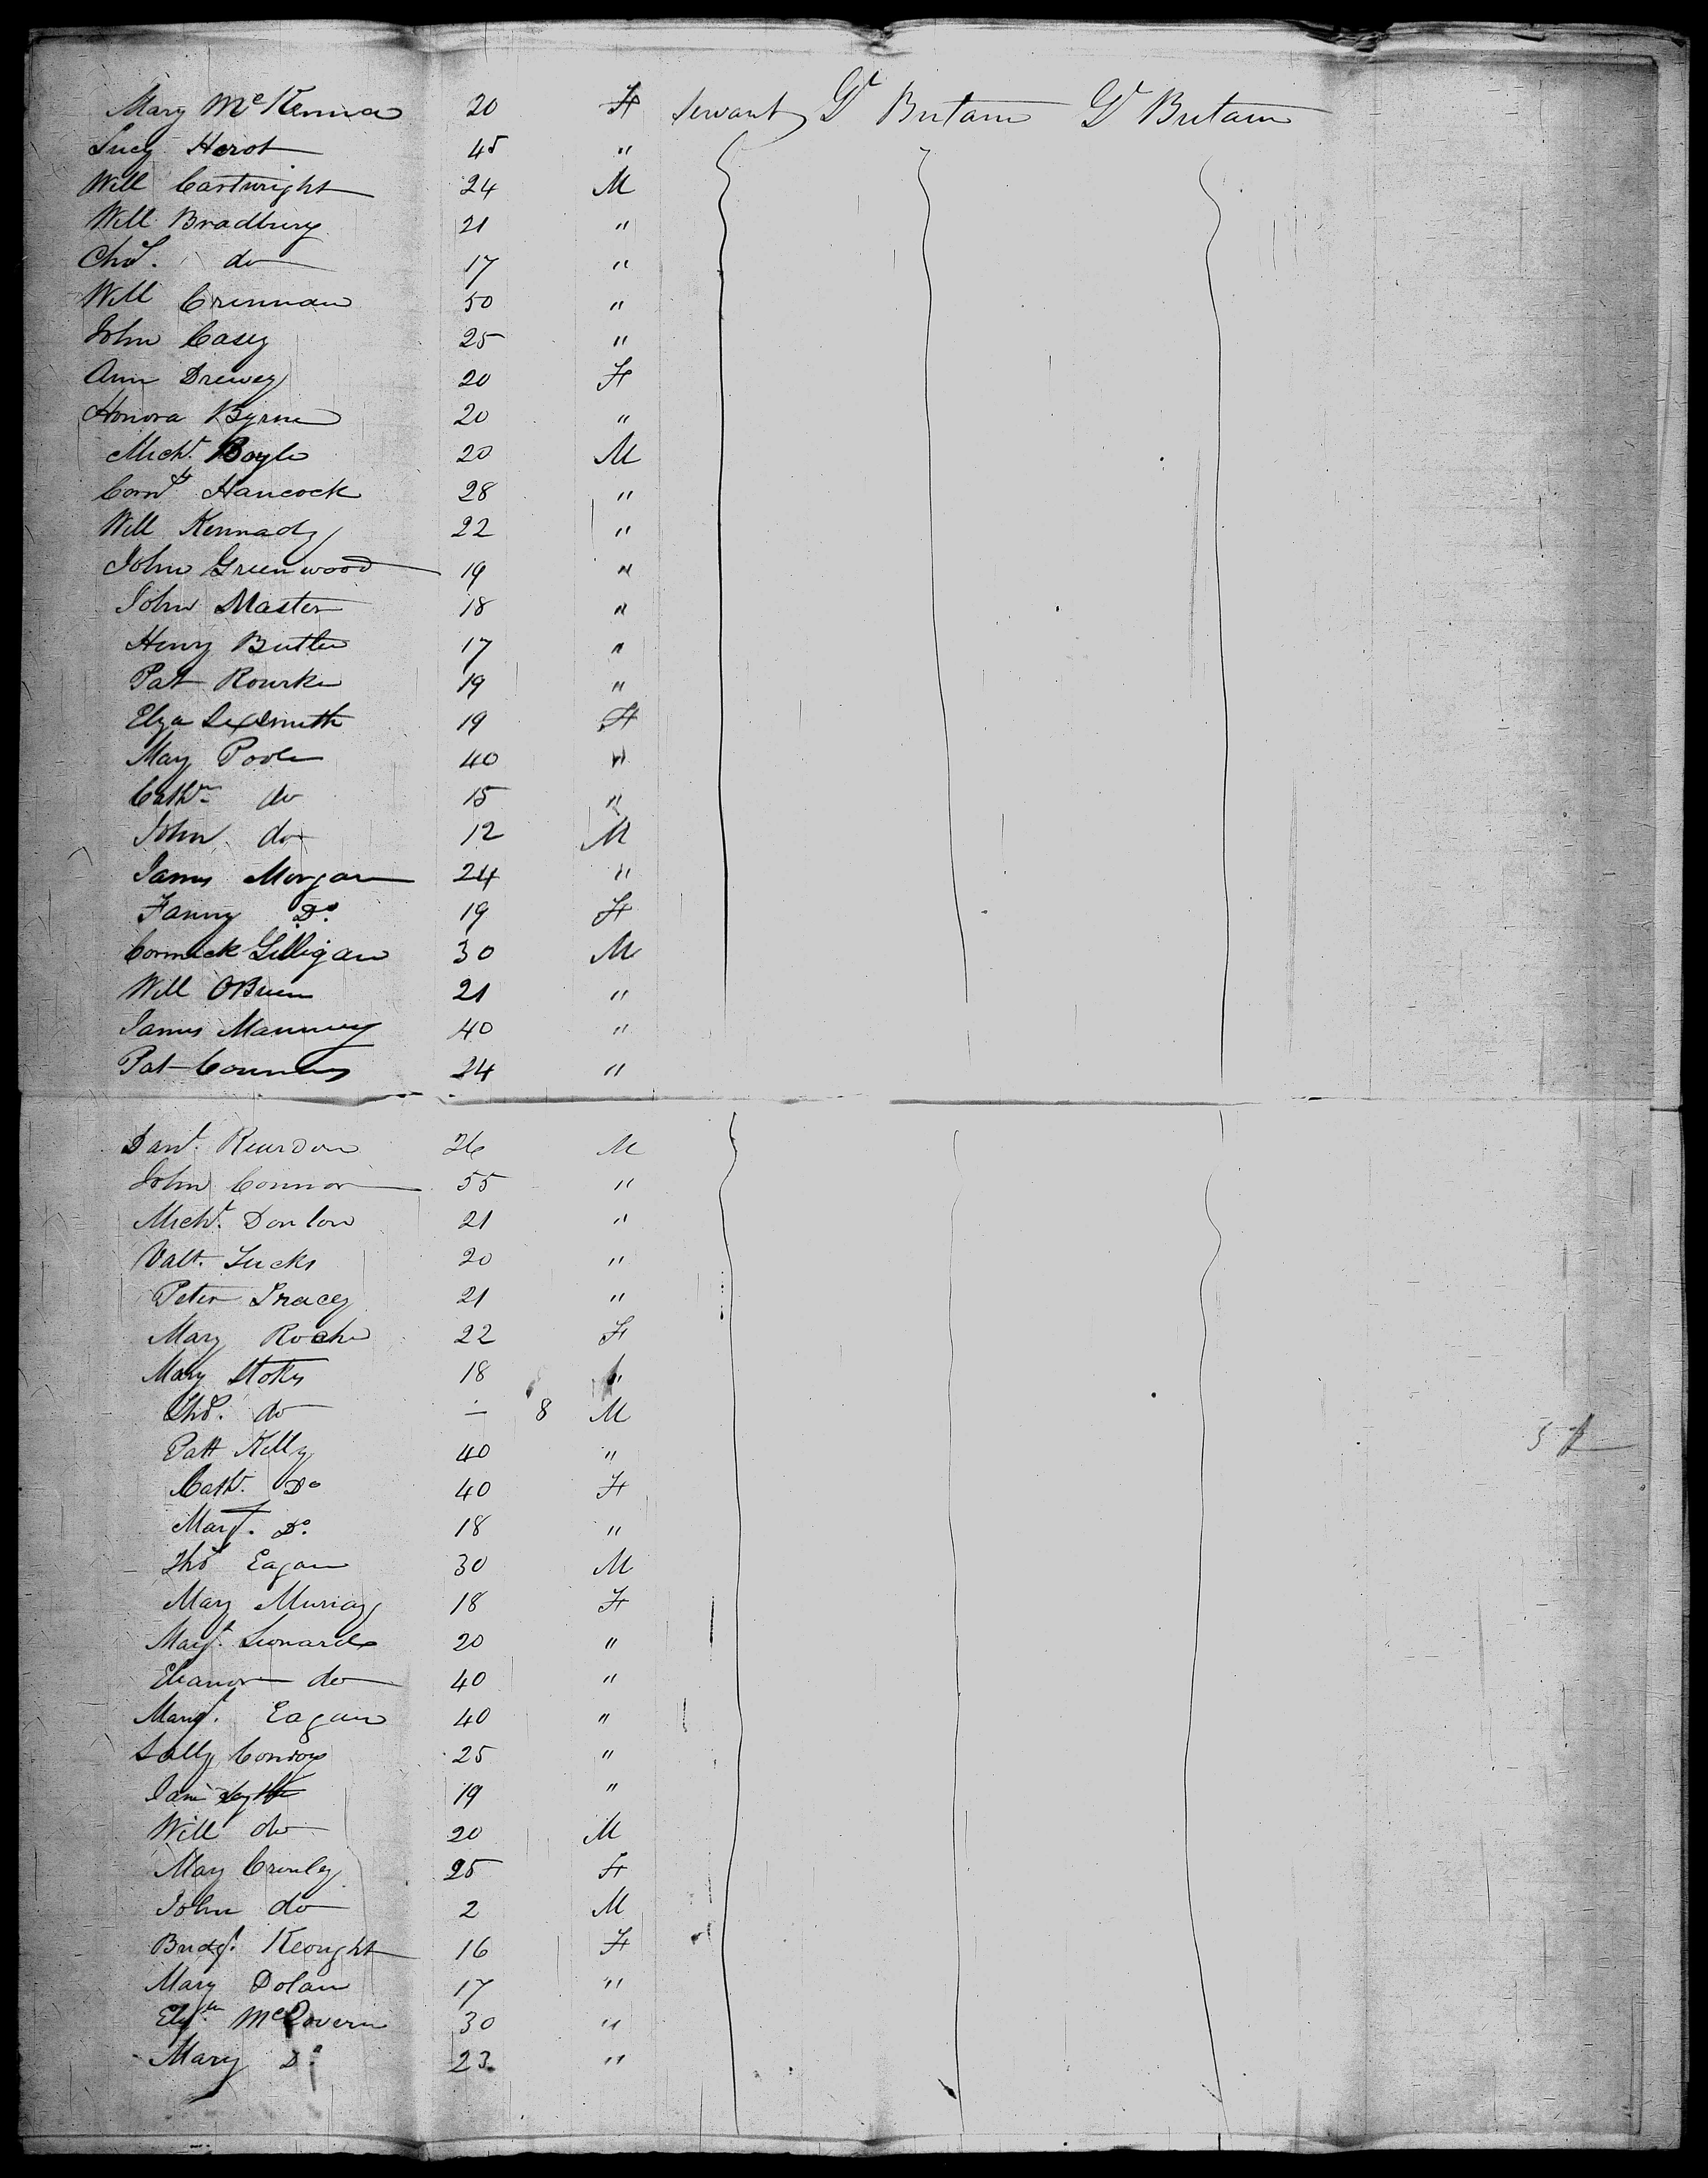 Mary McKenna 20 F Servant Gt Britain Gt Britain
Lucy Herot 45 "
Will Cartwright 24 M
Will Bradbury 21 "
Chs. do 17 "
Will Crennan 50 "
John Casey 25 "
Ann Drewey 20 F
Honora Byrne 20 "
Michl. Boyle 20 M
Hancock 28 "
Will Kennady 22 "
John Greenwood 19 "
John Master 18 "
Henry Butler 17 "
Pat Rourke 19 "
Elza Sexsmith 19 F
Mary Poole 40 "
Cathn do 15 "
John do 12 M
James Morgan 24 "
Fanny Do. 19 F
Cormick Gilligan 30 M
Will OBrien 21 "
James Manning 40 "
Pat 24 "
Danl. Reardon 26 M
John Connor 55 "
Michl. Donlon 21 "
Valt. 20 "
Peter Tracey 21 "
Mary Roche 22 F
Mary Stokes 18 "
Ths. do — 8 M
Patt Kelly 40 "
Cath. Do 40 F
Margt. Do. 18 "
Ths Eagan 30 M
Mary Murray 18 F
Margt. Leonard 20 "
Eleanor do 40 "
Margt. Eagan 40 "
Sally Conroy 25 "
Jane 19 "
Will do 20 M
Mary Cronley 25 F
John do 2 M
Bridgt. Keought 16 F
Mary Dolan 17 "
Elizth McGovern 30 "
Mary Do 23 "